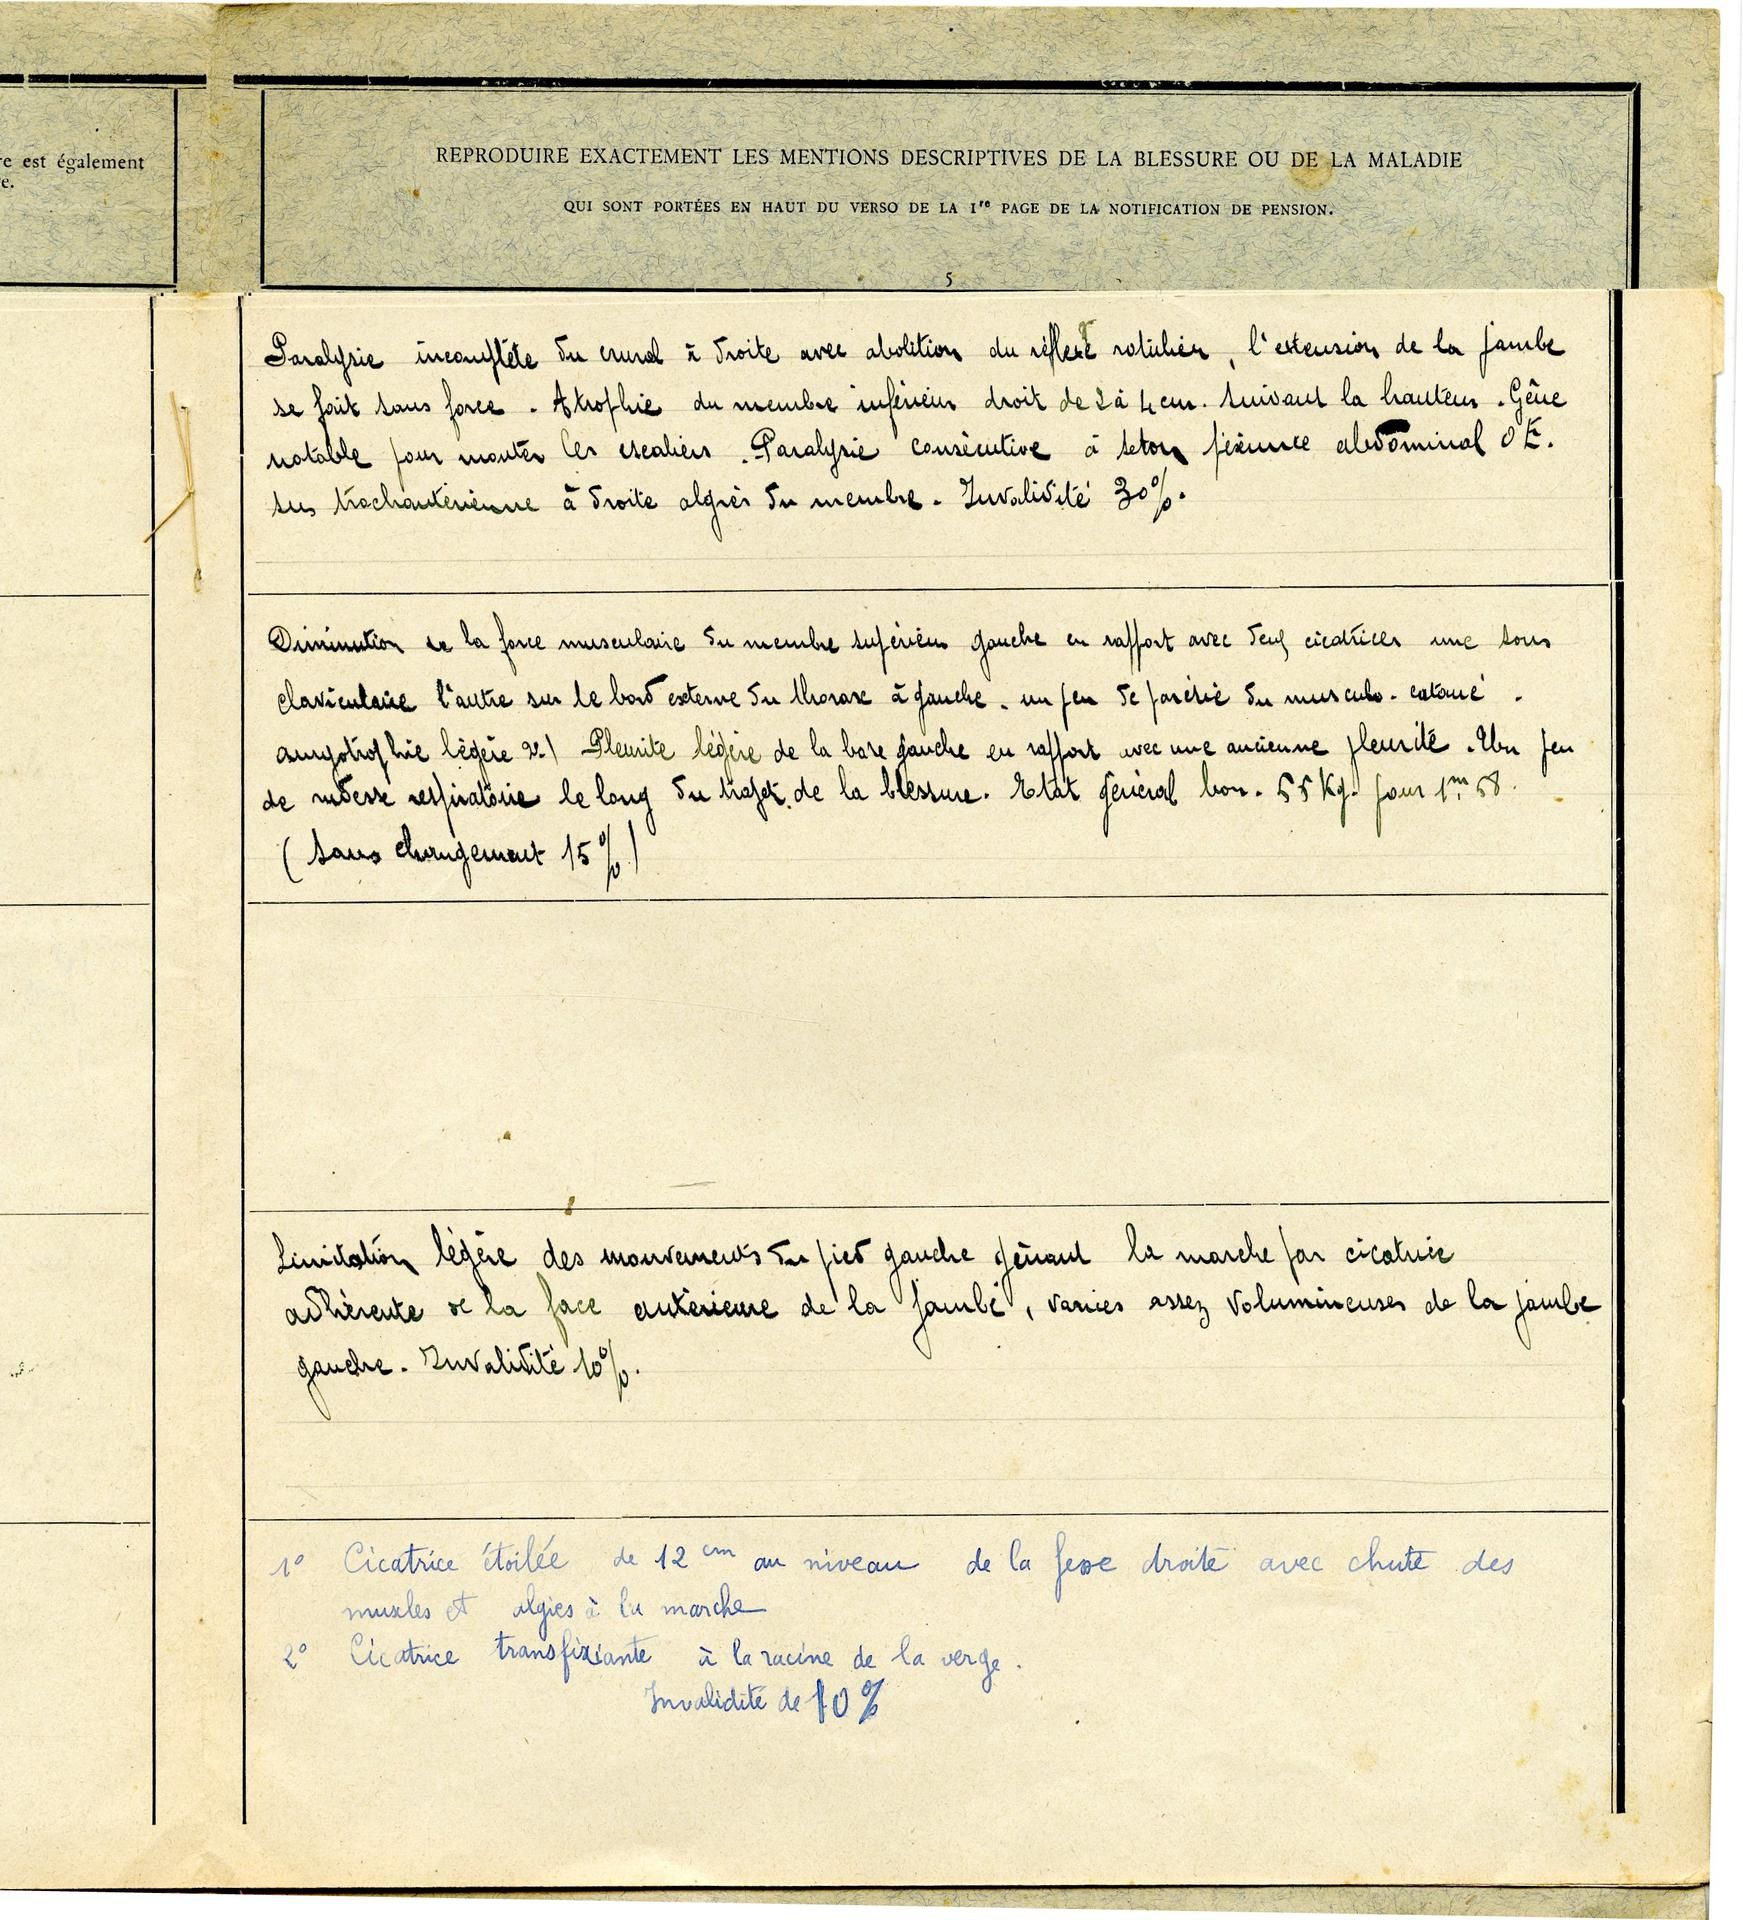 re est également
e.
REPRODUIRE EXACTEMENT LES MENTIONS DESCRIPTIVES DE LA BLESSURE OU DE LA MALADIE
QUI SONT PORTÉES EN HAUT DU VERSO DE LA 1re PAGE DE LA NOTIFICATION DE PENSION.
5
Paralysie incomplète du crural à droite avec abolition du réflexe rotulien, l'extension de la jambe
se fait sans force. Atrophie du membre inférieur droit de 2 à 4 cm. suivant la hauteur. Gêne
notable pour monter les escaliers. Paralysie consécutive à seton abdominal
sus trochantérienne à droite algies du membre. Invalidité 30%.
Diminution de la force musculaire du membre supérieur gauche en rapport avec deux cicatrices une sous
claviculaire l'autre sur le bord externe du thorax à gauche. un peu de parésie du musculo-cutané.
amyotrophie légère 2) Pleurite légère de la base gauche en rapport avec une ancienne pleurite. Un peu
de rudesse respiratoire le long du trajet de la blessure. Etat général bon. 55 Kg. pour 1m58.
(sans changement 15%)
Limitation légère des mouvements du pied gauche gênant la marche par cicatrice
adhérente de la face antérieure de la jambe, varices assez volumineuses de la jambe
gauche. Invalidité 10%.
1° Cicatrice étoilée de 12 cm au niveau de la fesse droite avec chute des
muscles et algies à la marche
2° Cicatrice transfixiante à la racine de la verge.
Invalidité de 10%